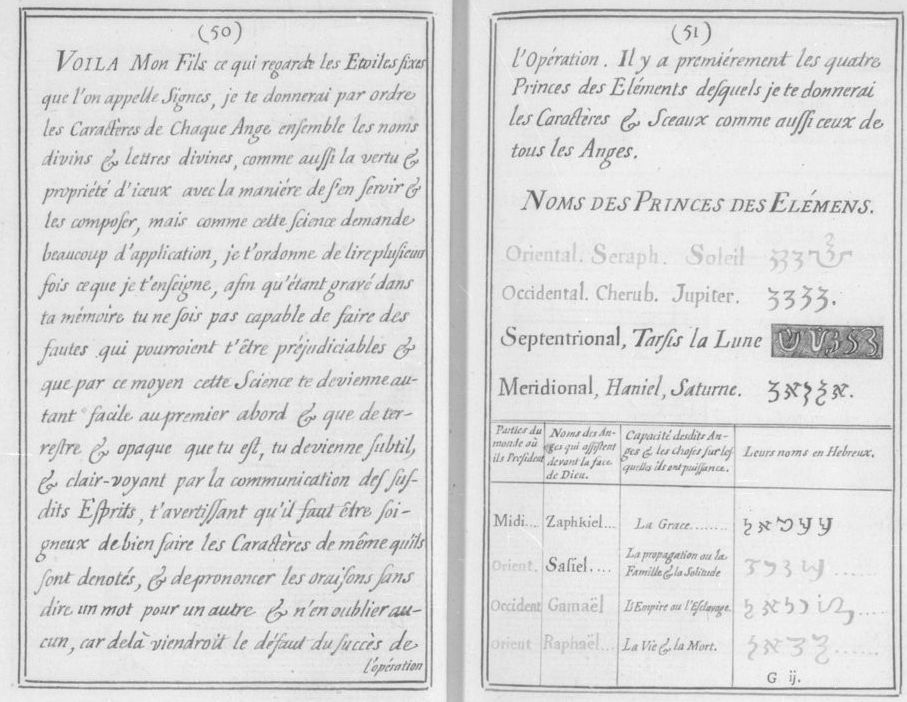 (50)
VOILA Mon Fils ce qui regarde les Etoiles fixes
que l'on appelle Signes, je te donnerai par ordre
les Caractères de Chaque Ange enſemble les noms
divins & lettres divines, comme auſſi la vertu &
propriété d'iceux avec la maniére de ſ'en ſervir &
les compoſer, mais comme cette ſcience demande
beaucoup d'application, je t'ordonne de lire pluſieurs
fois ce que je t'enſeigne, afin qu'étant gravé dans
ta mémoire tu ne ſois pas capable de faire des
fautes qui pourroient t'être préjudiciables &
que par ce moyen cette Science te devienne au-
tant facile au premier abord & que de ter-
reſtre & opaque que tu eſt, tu devienne ſubtil,
& clair-voyant par la communication deſ ſuſ-
dits Eſprits, t'avertiſſant qu'il faut être ſoi-
gneux de bien faire les Caractères de même qu'ils
ſont denotés, & de prononcer les oraiſons ſans
dire un mot pour un autre & n'en oublier au-
cun, car delà viendroit le défaut du ſuccès de
l'opération
(51)
l'Opération. Il y a premiérement les quatre
Princes des Eléments deſquels je te donnerai
les Caractères & Sceaux comme auſſi ceux de
tous les Anges.
NOMS DES PRINCES DES ELÉMENS.
Oriental. Seraph. Soleil
Occidental. Cherub. Jupiter.
Septentrional, Tarſis la Lune
Meridional, Haniel, Saturne.
Parties du monde où ils Preſident
Noms des Anges qui aſſiſtent devant la face de Dieu.
Capacité desdits Anges & les choſes ſur leſquelles ils ont puiſſance.
Leurs noms en Hebreux.
Midi.... Zaphkiel... La Grace........
Orient. Saſiel.... La propagation ou la Famille & la Solitude
Occident Gamaël L'Empire ou l'Eſclavage.
Orient Raphaël... La Vie & la Mort.
G ij.